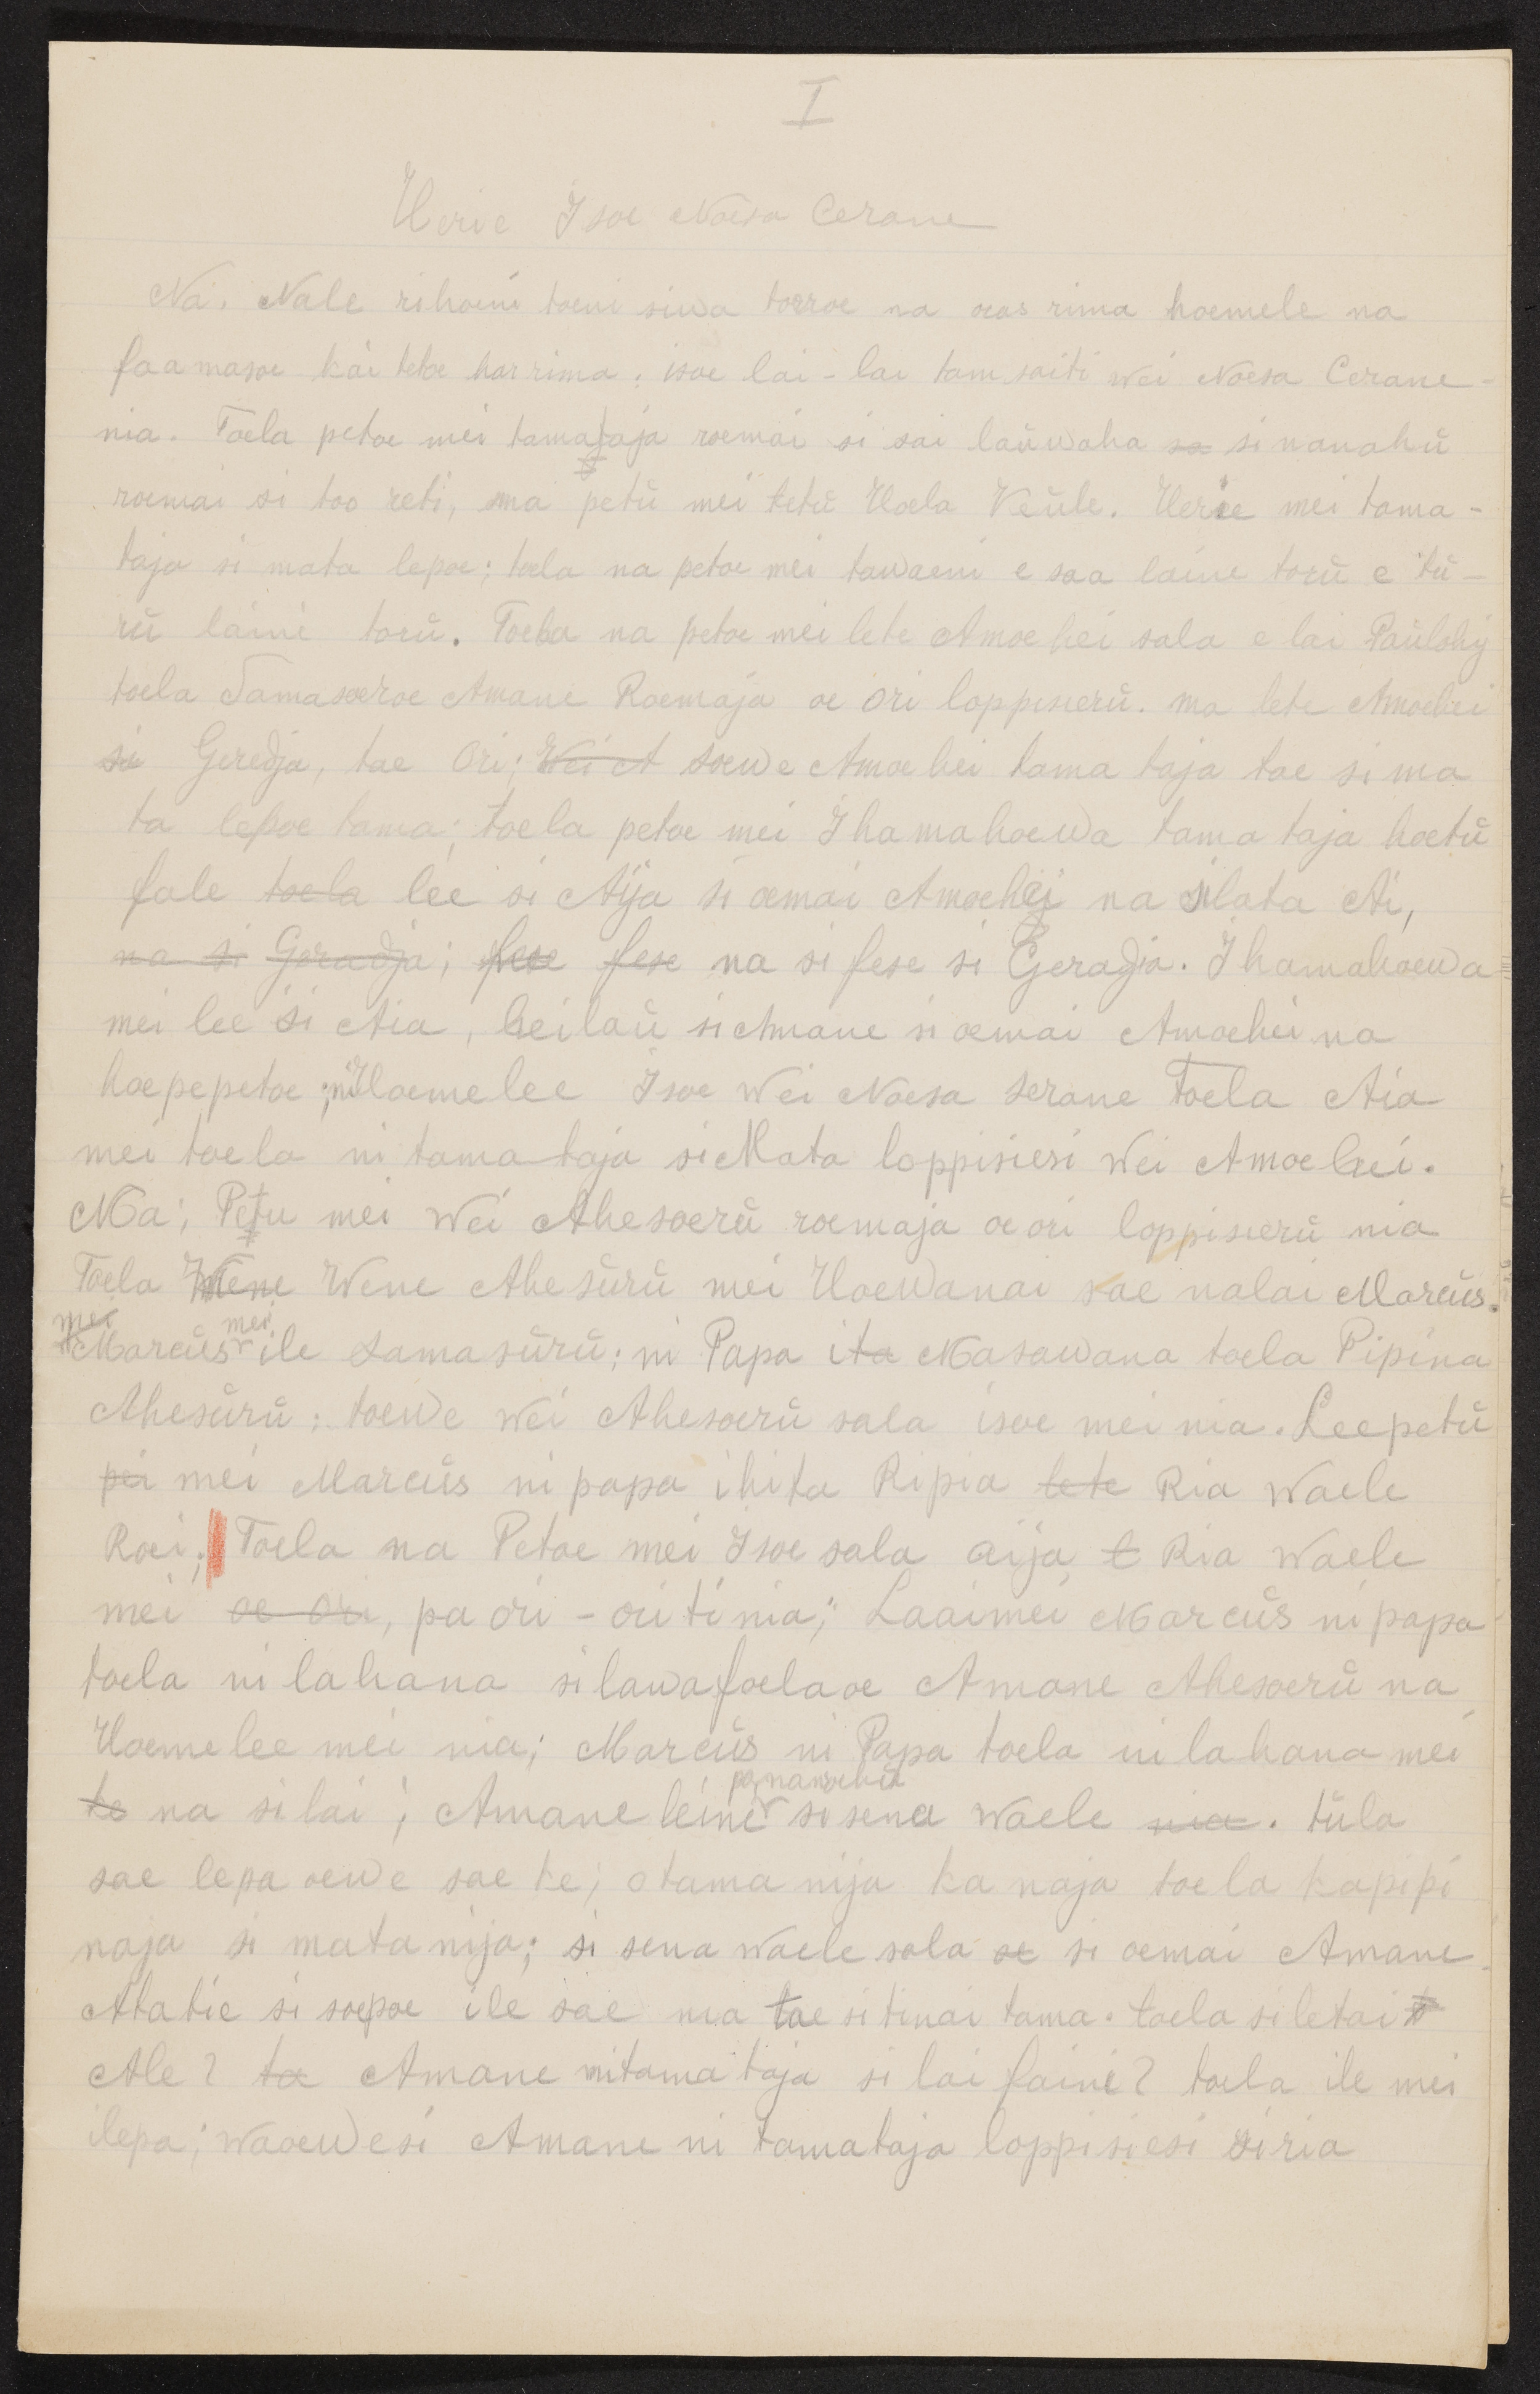 I
Uerie Isoe Noesa Cerane
Na. Nale rihoeni toeni siwa torroe na oeos rima hoemele na
faamasoe kai tetoe harrima; isoe lai-lai tam saiti wei Noesa Cerane-
nia. Toela petoe mei tamataja roemai si sai laüwaha sa si nanahü
roemai si too reti, ma petü mei tetü Uoela Keüle. Uerie mei tama-
taja si mata lepoe; toela na petoe mei tawaeni e saa laine torü e tü-
rü laini torü. Toela na petoe mei lete Amoehei sala e lai Paülohij
toela Samasoeroe Amane Roemaja oe ori loppisierü. ma lete Amoehei
si Geredja, tae Ori; Wei A soewe Amoehei tama taja tae si ma
ta lepoe tama; toela petoe mei Ihamahoewa tama taja hoetü
fale toela lee si Aija si oemai Amoehei na silata Ai,
na si Geradja; fese fese na si fese si Geradja. Ihamahoewa
mei lee si Aia, heilaü si Amane si oemai Amoehei na
hoepepetoe; ni Uoemelee Isoe Wei Noesa Serane Toela Aia
mei toela ni tamataja si Mata loppisiesi Wei Amoehei.
Ma; Petu mei Wei Ahesoerü roemaja oe ori loppisierü nia
Toela Wene Wene Ahesürü mei Uoewanai sae nalai Marcüs.
mei Marcüs mei ile Samasürü; ni Papa ita Masawana toela Pipina
Ahesürü; toewe wei Ahesoerü sala isoe mei nia. Lee petü
pei mei Marcüs ni papa ihita Ripia lete Ria Waele
Roei; Toela na Petoe mei Isoe sala aija t Ria Waele
mei oe ori, pa ori-ori ti nia; Laaimei Marcüs ni papa
toela ni lahana si lawa foelaoe Amane Ahesoerü na
Uoemelee mei nia; Marcüs ni Papa toela ni lahana mei
te na si lai; Amane leine pamanoehü si sena Waele nia. tüla
sae lepa oewe sae ke; otama nija ka naja toela kapipi
naja si mata nija; si sena Waele sala se si oemai Amane
Atatie si soepoe ile sae ma tae si tinai tama. toela si letai
Ale? ta Amane nitama taja si lai faine? toela ile mei
ilepa; waoewesi Amane ni tamataja loppisiesi siria